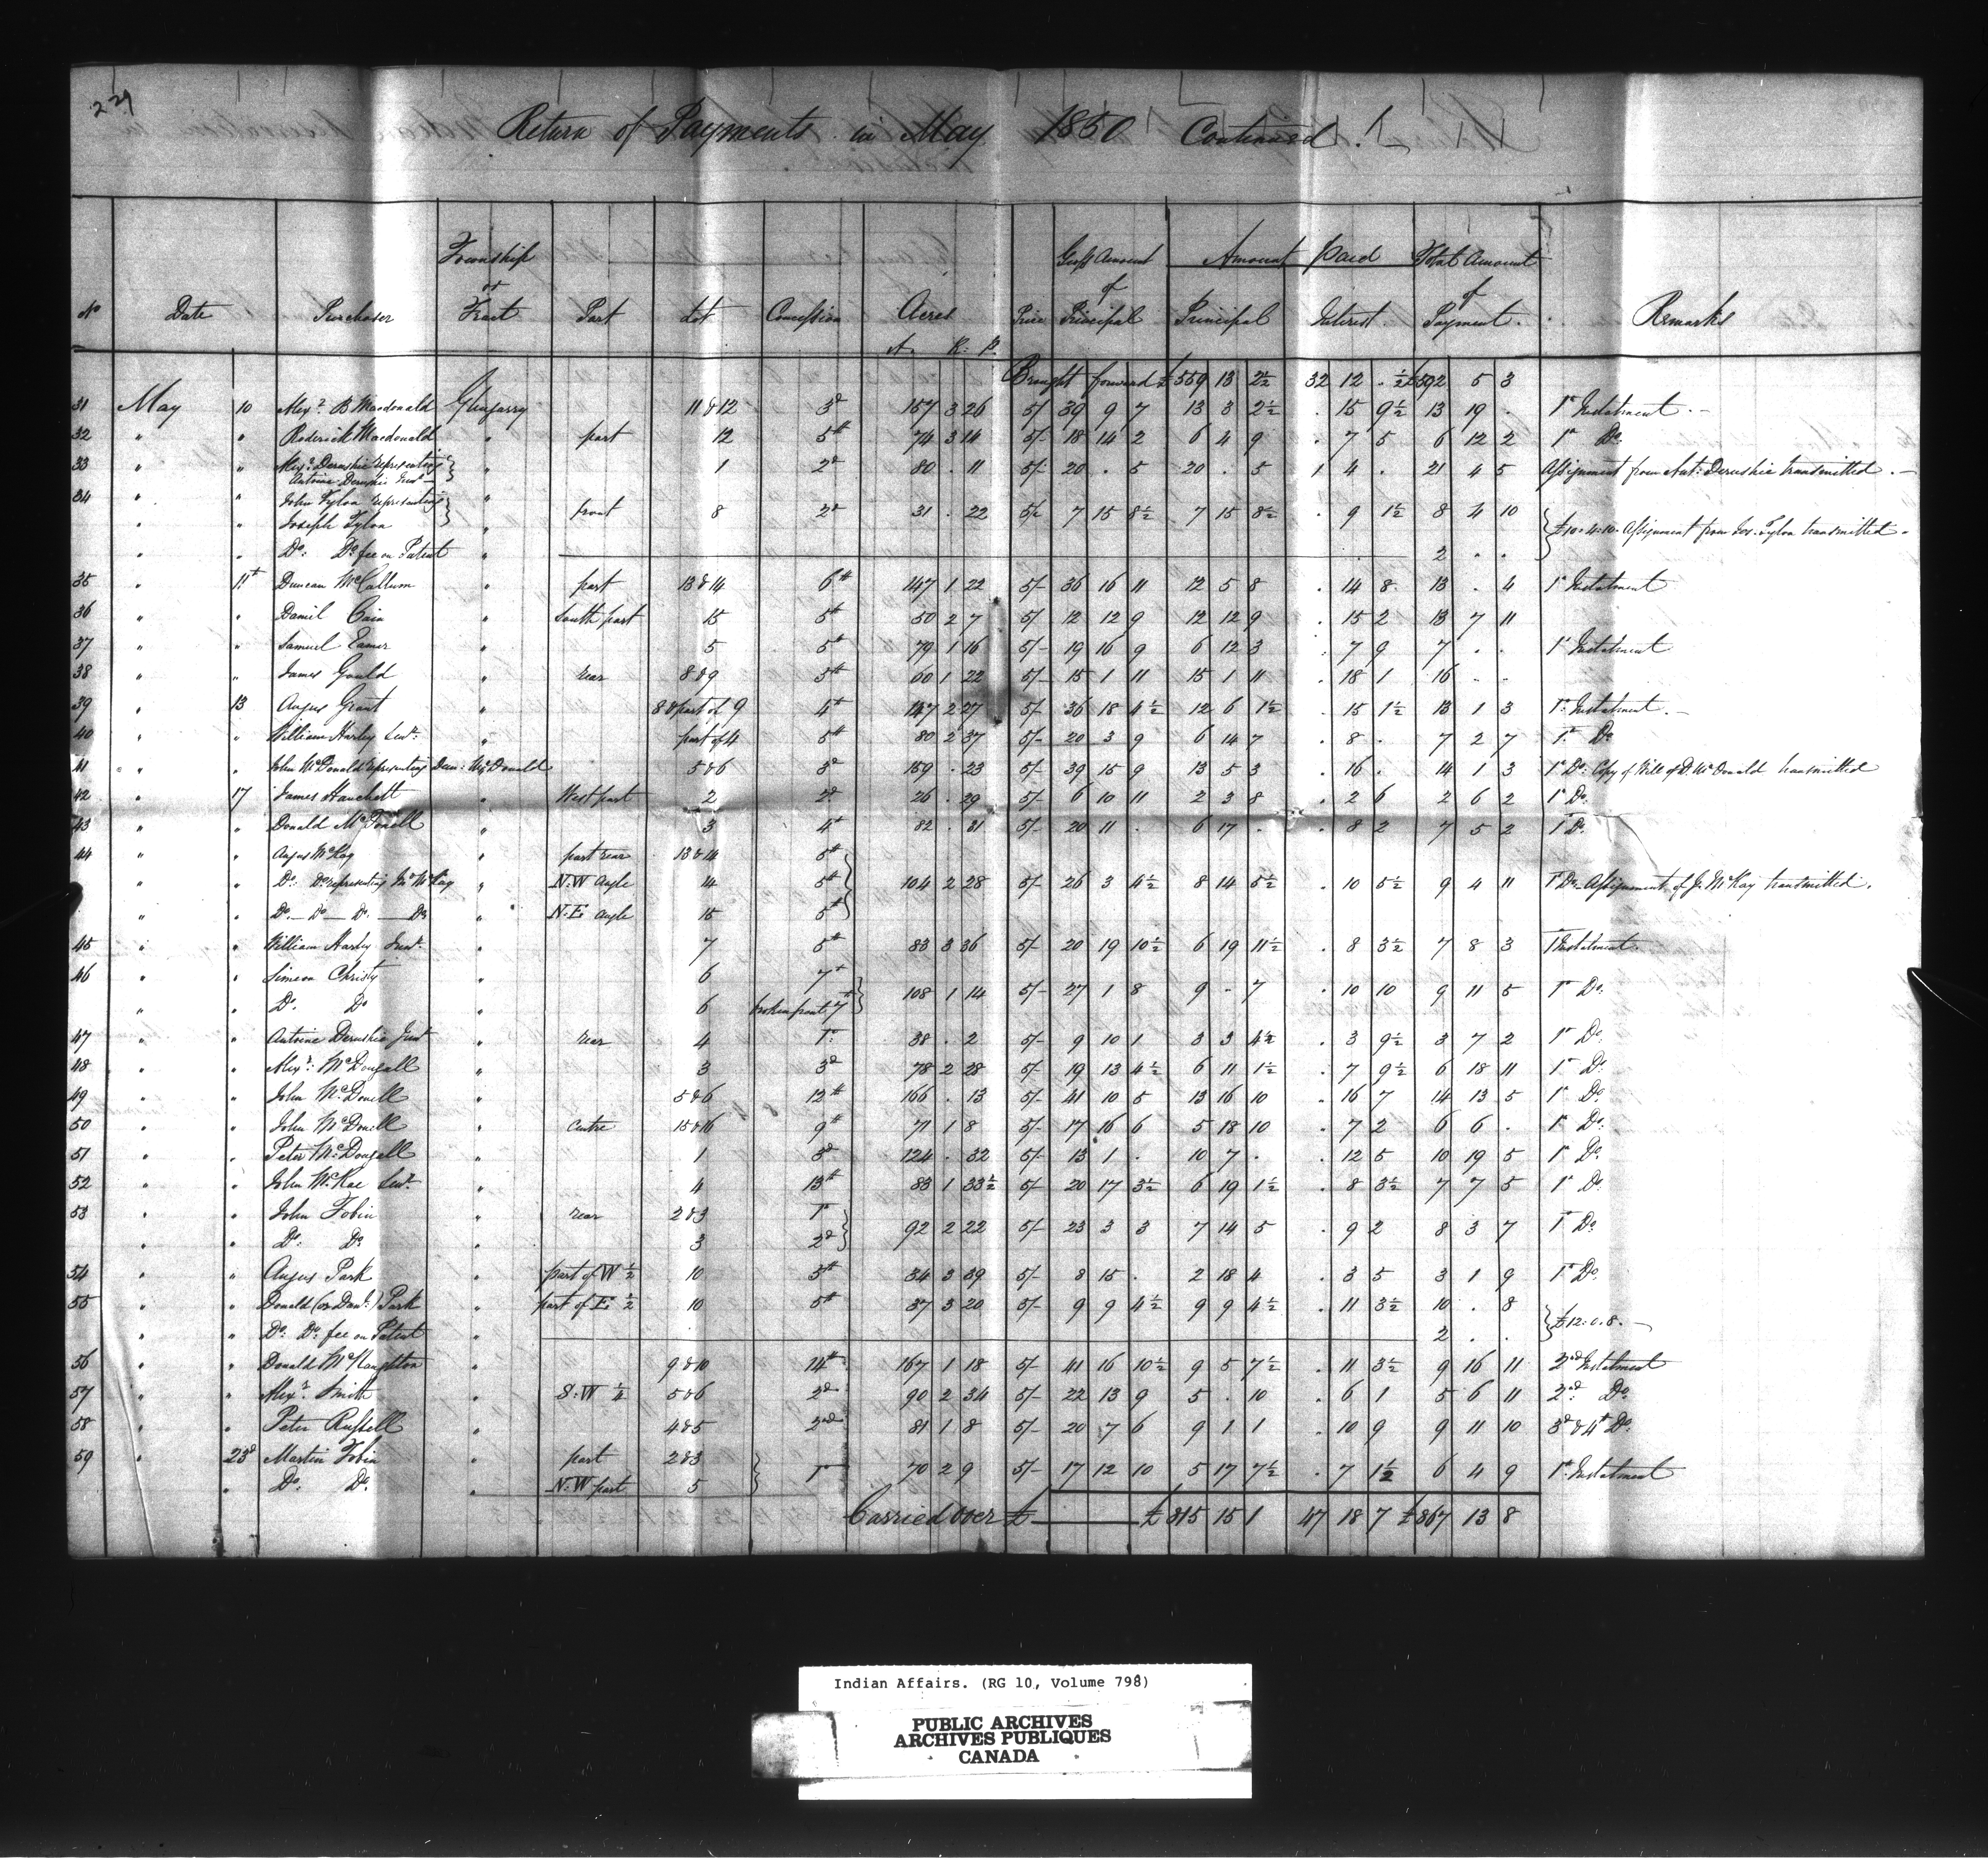 229
Return of Payments in May 1850 Continued
Township
or
Tract
Gross Amount
of
Principal
Amount Paid
Total Amount
of
Payment
No Date Purchaser Part Lot Concession Acres Price Principal Interest Remarks
A. R. P.
Brought forward £559 13 2½ 32 12 . ½ £592 5 3
31 May 10 Alexr. B Macdonald Glengarry 11 & 12 3d 157 3 26 5/ 39 9 7 13 3 2½ . 15 9½ 13 19 . 1st Instalment
32 " " Roderick Macdonald " part 12 5th 74 3 14 5/- 18 14 2 6 4 9 . 7 5 6 12 2 1st Do.
33 " " Alexr. Deruchie representing " 1 2d 80 . 11 5/- 20 . 5 20 . 5 1 4 . 21 4 5 Assignment from Ant: Deruchie transmitted.
Antoine Deruchie Senr.
34 John Tylon representing "
" " Joseph Tylon " front 8 2d 31 . 22 5/- 7 15 8½ 7 15 8½ . 9 1½ 8 4 10 £10.4.10. Assignment from Jos. Tylon transmitted.
" " Do. Do. fee on Patent " 2 . .
35 " 11th Duncan McCallum " part 13 & 14 6th 147 1 22 5/- 36 16 11 12 5 8 . 14 8 13 . 4 1st Instalment
36 " " Daniel Cain " South part 15 5th 50 2 7 5/ 12 12 9 12 12 9 . 15 2 13 7 11
37 " " Samuel Eamer " 5 5th 79 1 16 5/- 19 16 9 6 12 3 . 7 9 7 . . 1st Instalment
38 " " James Gould " rear 8 & 9 5th 60 1 22 5/- 15 1 11 15 1 11 . 18 1 16 . .
39 " 13 Angus Grant " 8 & part of 9 4th 147 2 27 5/ 36 18 4½ 12 6 1½ . 15 1½ 13 1 3 1st Instalment.
40 " " William Harley Senr. " part of 4 5th 80 2 37 5/- 20 3 9 6 14 7 . 8 . 7 2 7 1st Do.
41 " " John McDonald representing Dun: McDonald 5 & 6 3d 159 . 23 5/- 39 15 9 13 5 3 . 16 . 14 1 3 1st Do: Copy of Will of D. McDonald transmitted
42 " 17 James Hanchett " West part 2 2d 26 . 29 5/- 6 10 11 2 3 8 . 2 6 2 6 2 1st Do.
43 " " Donald McDonell " 3 4th 82 . 31 5/- 20 11 . 6 17 . . 8 2 7 5 2 1st Do.
44 " " Angus McKay " part rear 13 & 14 5th
" " Do: Do. representing Jno McKay " N.W Angle 14 5th 104 2 28 5/- 26 3 4½ 8 14 5½ . 10 5½ 9 4 11 1st Do. Assignment of J. McKay transmitted.
" " Do. Do. Do. Do. " N.E. angle 15 5th
45 " " William Harley Junr. " 7 5th 83 3 36 5/- 20 19 10½ 6 19 11½ . 8 3½ 7 8 3 1st Instalment.
46 " " Simeon Christy " 6 7th
" " Do. Do " 6 broken front 7th 108 1 14 5/- 27 1 8 9 - 7 . 10 10 9 11 5 1st Do.
47 " " Antoine Deruchie Junr " rear 4 1st 38 . 2 5/- 9 10 1 3 3 4½ . 3 9½ 3 7 2 1st Do.
48 " " Alexr: McDougall " 3 3d 78 2 28 5/ 19 13 4½ 6 11 1½ . 7 9½ 6 18 11 1st Do.
49 " " John McDonell " 5 & 6 12th 166 . 13 5/- 41 10 5 13 16 10 . 16 7 14 13 5 1st Do.
50 " " John McDonell " Centre 15 & 16 9th 71 1 8 5/- 17 16 6 5 18 10 . 7 2 6 6 . 1st Do.
51 " " Peter McDougall " 1 3d 124 . 32 5/- 13 1 . 10 7 . . 12 5 10 19 5 1st Do.
52 " " John McRae Senr. " 4 13th 83 1 33½ 5/- 20 17 3½ 6 19 1½ . 8 3½ 7 7 5 1st Do.
53 " " John Tobin " rear 2 & 3 1st
" " Do: Do. " 3 2d 92 2 22 5/- 23 3 3 7 14 5 . 9 2 8 3 7 1st Do.
54 " " Angus Park " part of W ½ 10 5th 34 3 39 5/- 8 15 . 2 18 4 . 3 5 3 1 9 1st Do.
55 " " Donald (or Danl.) Park " part of E. ½ 10 5th 37 3 20 5/- 9 9 4½ 9 9 4½ . 11 3½ 10 . 8 £12.0.8.
" " Do: Do: fee on Patent " 2 . .
56 " " Donald McNaughton " 9 & 10 14th 167 1 18 5/- 41 16 10½ 9 5 7½ . 11 3½ 9 16 11 2nd Instalment
57 " " Alexr. Smith " S.W ¼ 5 & 6 2d 90 2 34 5/- 22 13 9 5 . 10 . 6 1 5 6 11 2nd: Do.
58 " " Peter Russell " 4 & 5 2nd 81 1 8 5/- 20 7 6 9 1 1 . 10 9 9 11 10 3d & 4th Do.
59 " 23d Martin Tobin " part 2 & 3
" Do. Do. " N.W part 5 1st 70 2 9 5/- 17 12 10 5 17 7½ . 7 1½ 6 4 9 1st Instalment
Carried over £ £815 15 1 47 18 7 £867 13 8
Indian Affairs. (RG 10, Volume 798)
PUBLIC ARCHIVES
ARCHIVES PUBLIQUES
CANADA